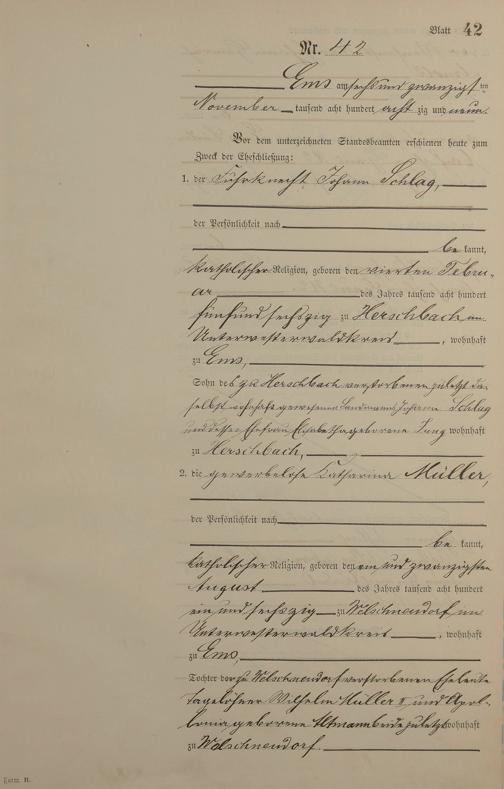 Blatt 42
Nr. 42
Ems am sechs und zwanzigsten
November tausend acht hundert acht zig und neun.
Vor dem unterzeichneten Standesbeamten erschienen heute zum
Zweck der Eheschließung:
1. der Fuhrknecht Johann Schlag,
der Persönlichkeit nach
be kannt,
katholischer Religion, geboren den vierten Febru-
ar des Jahres tausend acht hundert
fünfund sechszig zu Herschbach im
Unterwesterwaldkreis, wohnhaft
zu Ems,
Sohn des zu Herschbach verstorbenen zuletzt da-
selbst wohnhaft gewesenen Landmanns Johann Schlag
und dessen Ehefrau Elisabetha geborene Jung wohnhaft
zu Herschbach,
2. die gewerbelose Katharina Müller,
der Persönlichkeit nach
be kannt,
katholischer Religion, geboren den ein und zwanzigsten
August des Jahres tausend acht hundert
ein und sechszig zu Welschneudorf im
Unterwesterwaldkreis, wohnhaft
zu Ems,
Tochter der zu Welschneudorf verstorbenen Eheleute
Tagelöhner Wilhelm Müller II und Apol-
lonia geborene Altmann beide zuletzt wohnhaft
zu Welschneudorf.
Form. B.